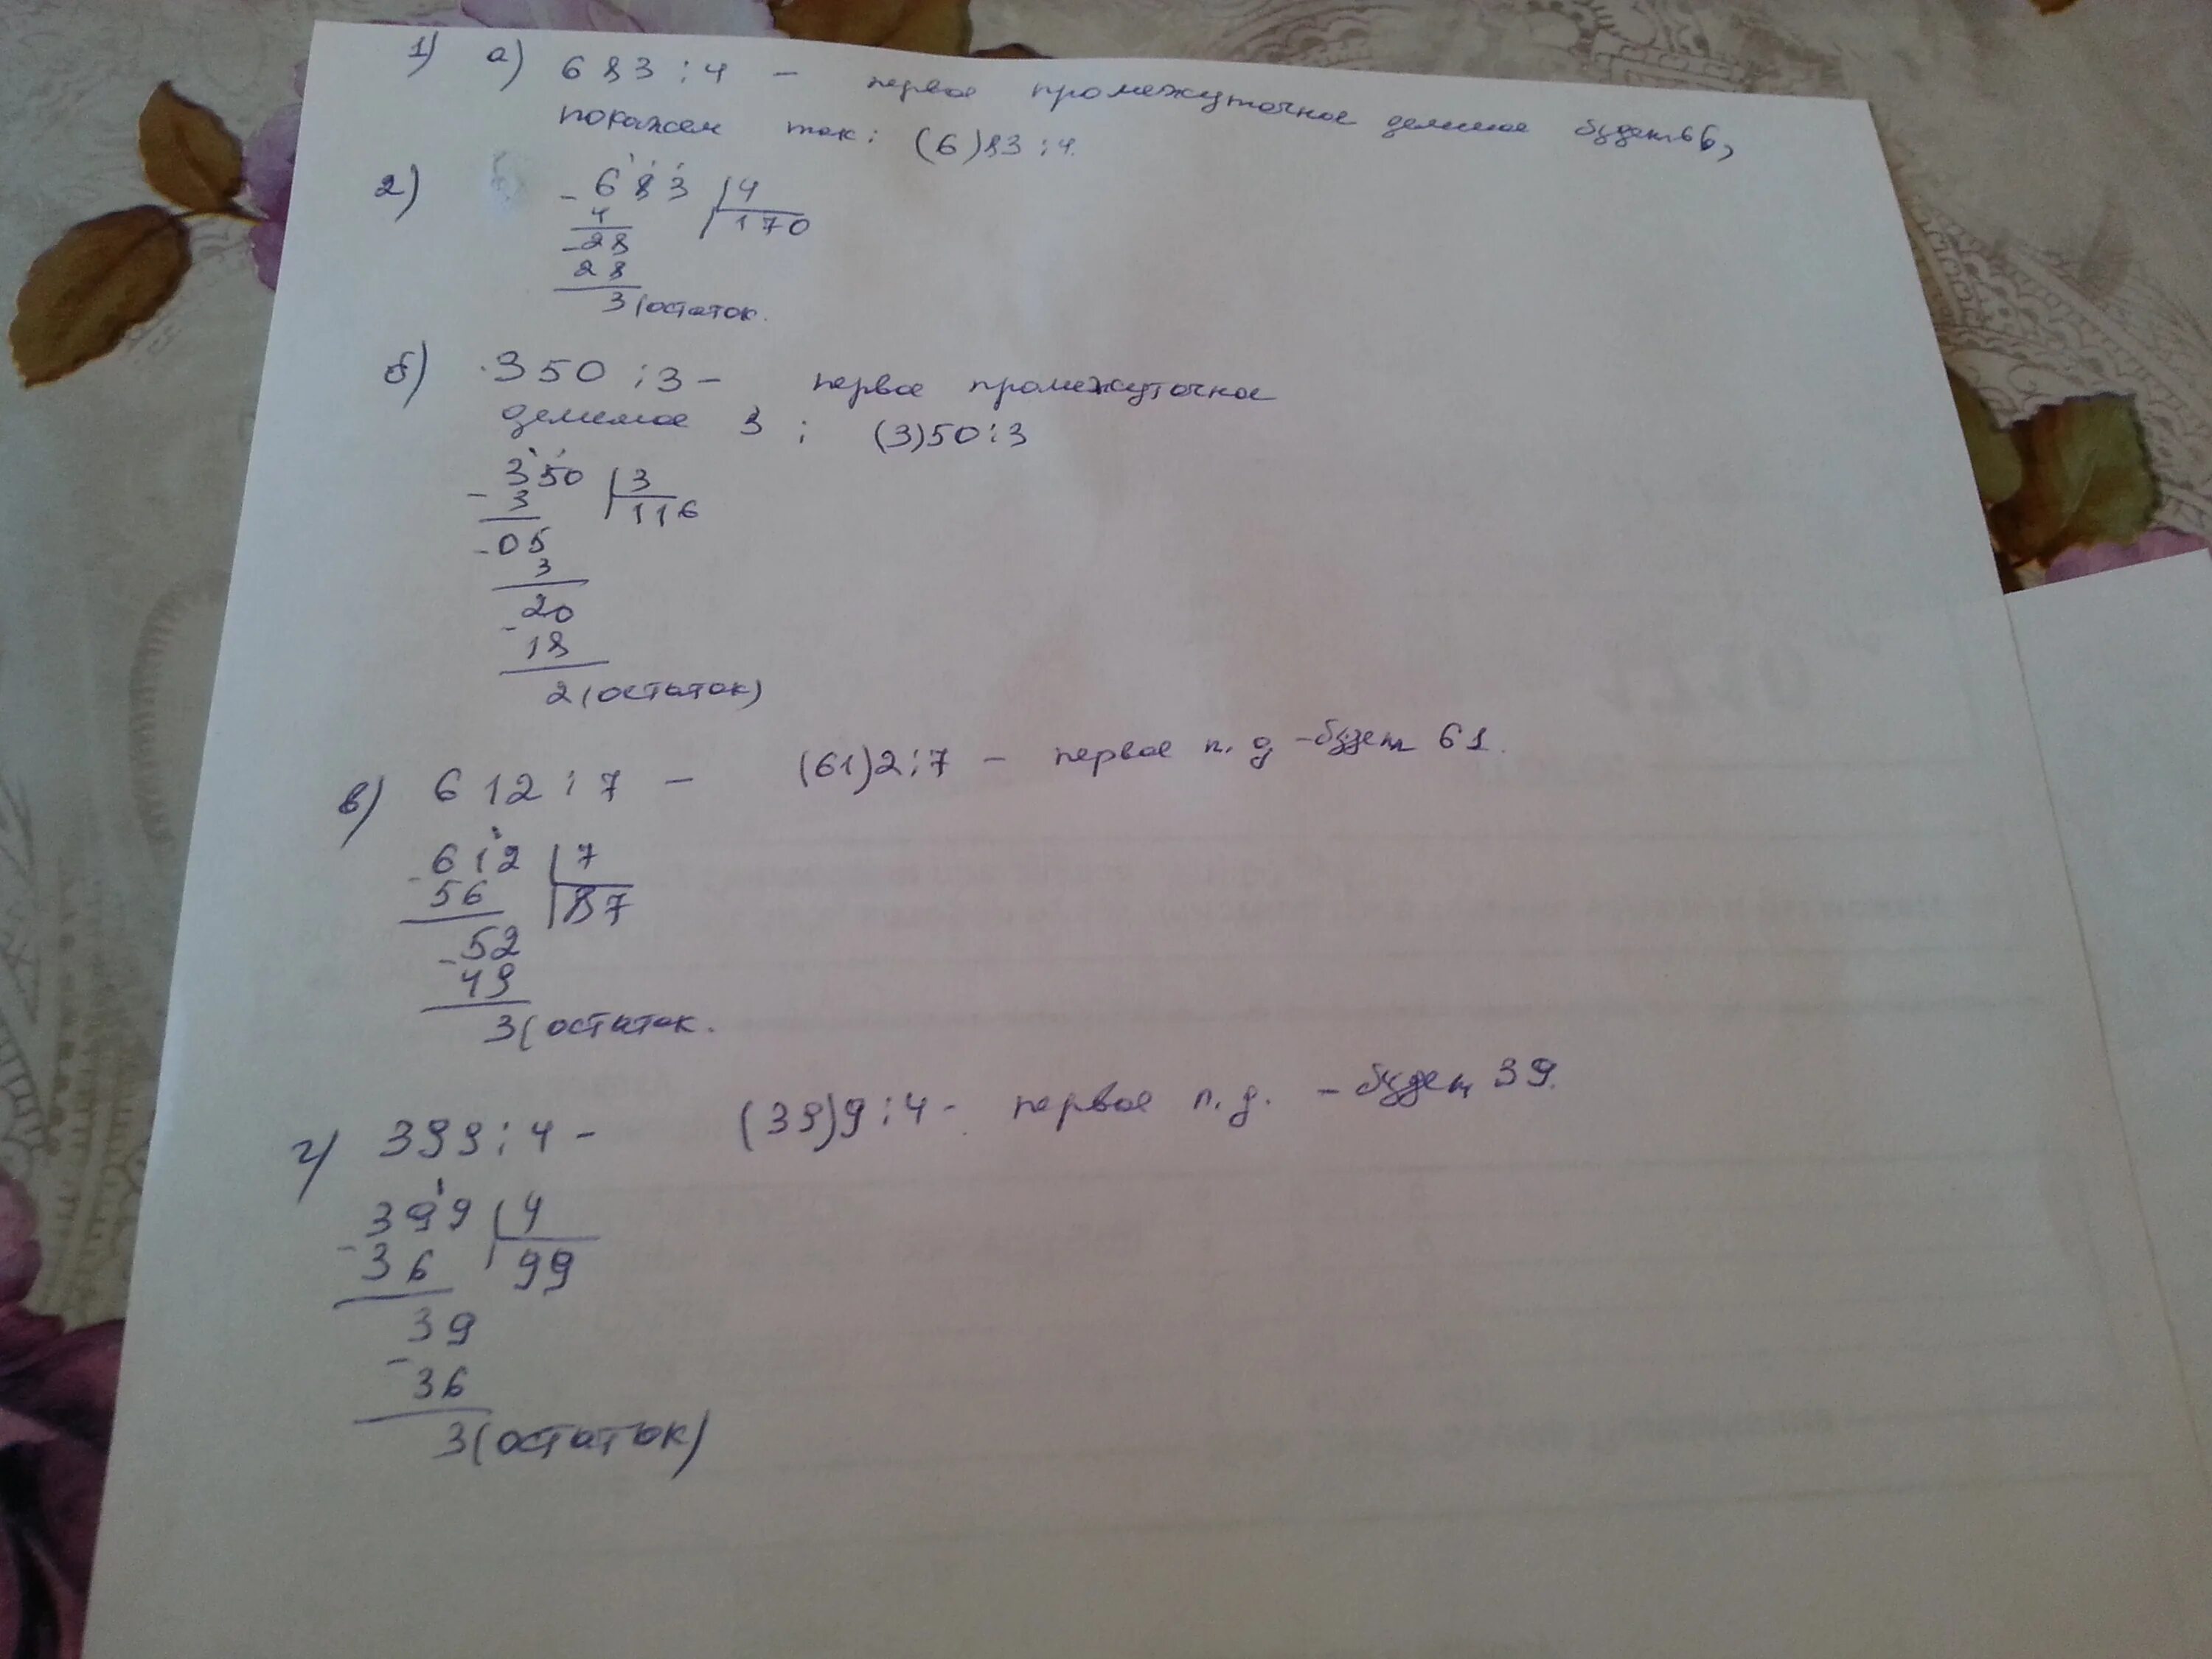 1) а) 683 : 4 – первое промежуточное делимое будет 6,
покажем так: (6)83 : 4.
2) – 683 4
4 170
– 28
28
3 (остаток.
б) 350 : 3 – первое промежуточное
делимое 3 ; (3)50 : 3
– 350 3
3 116
– 05
3
– 20
18
2 (остаток)
в) 612 : 7 – (61)2 : 7 – первое п. д – будет 61.
– 612 7
56 87
– 52
49
3 (остаток.
г) 399 : 4 – (39)9 : 4 – первое п. д. – будет 39.
– 399 4
36 99
39
– 36
3 (остаток)